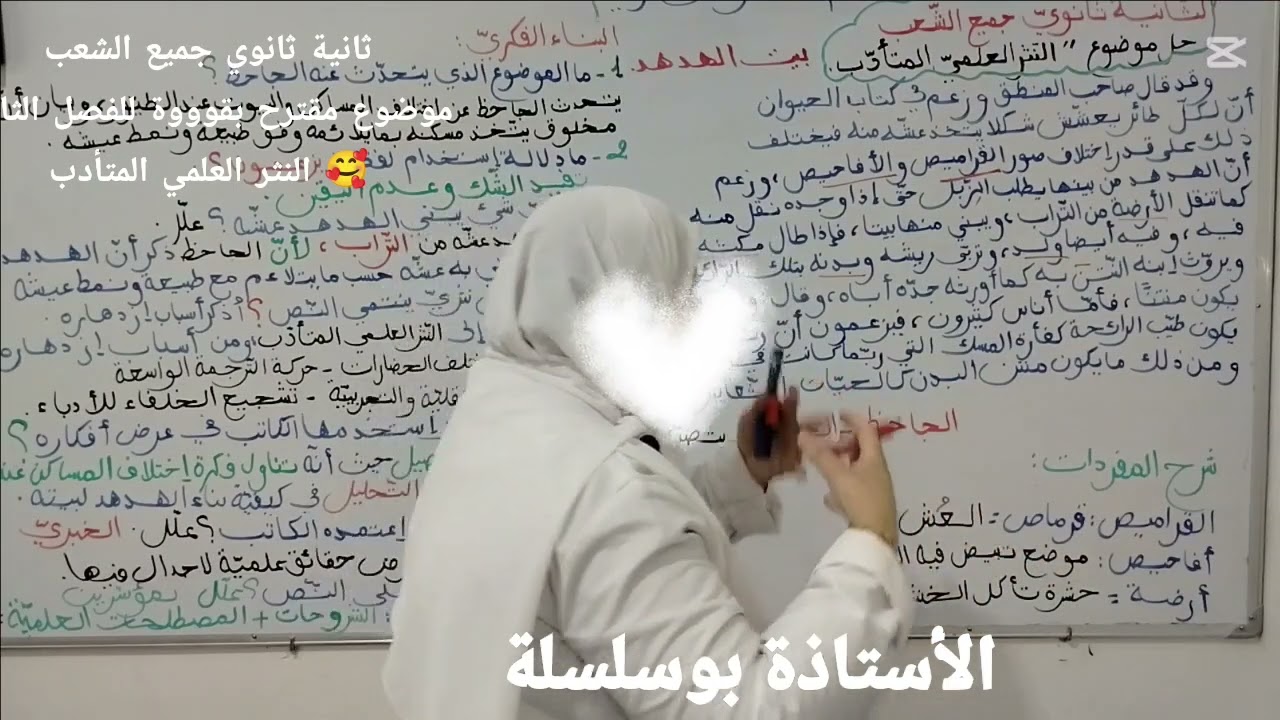 ثانية ثانوي جميع الشعب
موضوع مقترح بقوووة للفصل الثا
النثر العلمي المتأدب 🥰
لثانية ثانويّ جميع الشّعب
حل موضوع "النثر العلميّ المتأدّب.
بيت الهدهد.
وقد قال صاحب المنطق وزعم في كتاب الحيوان
أنّ لكلّ طائر يعشّش شكلا يتخذ عشّه منه فيختلف
ذلك على قدر اختلاف صور القراميص والأفاحيص، وزعم
أنّ الهدهد من بينها يطلب الزّبل حتّى إذا وجده نقل منه
كما تنقل الأرضة من التّراب، ويبني منها بيتا، فإذا طال مكثه
فيه، وفيه أيضا ولد، وتربّى ريشه وبدنه بتلك
ويورّث ابنه النّتن به كما أورثه جدّه أباه، وقال
يكون منتنًا، فأمّا أناس كثيرون، فيزعمون أنّ
يكون طيّب الرائحة كفأرة المسك التي ربّما كانت
ومن ذلك ما يكون منتن البدن كالحيّات
الجاحظ
شرح المفردات:
القراميص: قرماص = العُش
أفاحيص: موضع تبيض فيه
أرضة = حشرة تأكل الخش
البناء الفكريّ:
1- ما الموضوع الذي يتحدّث عنه الجاحظ؟
يتحدث الجاحظ عن
مخلوق يتّخذ مسكنه بما يلائمه وفق طبيعة ونمط عيشه.
2- ما دلالة استخدام
تفيد الشّك وعدم اليقين.
شيء يبني الهدهد عشّه؟ علّل.
عشّه من التّراب، لأنّ الجاحظ ذكر أنّ الهدهد
به عشّه حسب ما يتلاءم مع طبيعة ونمط عيشه
نثريّ ينتمي النّص؟ أذكر أسباب ازدهاره.
النّثر العلمي المتأدّب، ومن أسباب ازدهاره
الحضارات - حركة الترجمة الواسعة
والتجريبيّة - تشجيع الخلفاء للأدباء.
استخدمها الكاتب في عرض أفكاره؟
حيث أنّه تناول فكرة اختلاف المساكن
التّحليل في كيفيّة بناء الهدهد لبيته.
اعتمده الكاتب؟ علّل. الخبريّ
حقائق علميّة لا جدال فيها.
النّص؟ علّل بمؤشرين
الشروحات + المصطلحات العلميّة
الأستاذة بوسلسلة